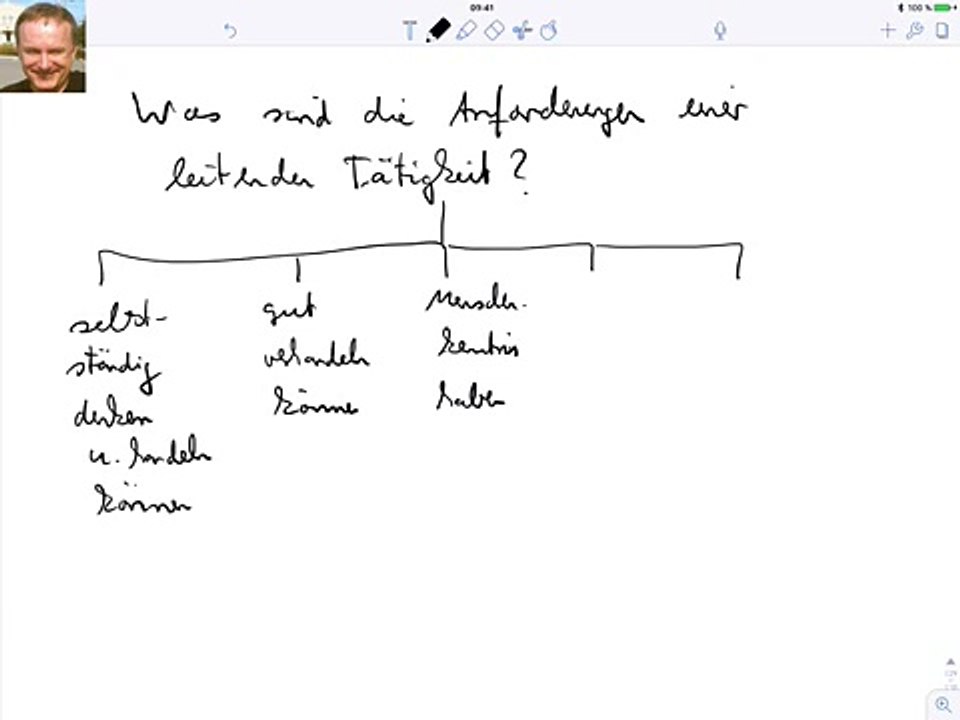 09:41
100 %
Was sind die Anforderungen einer
leitenden Tätigkeit?
selbst-
ständig
denken
u. handeln
können
gut
verhandeln
können
Menschen-
kentnis
haben